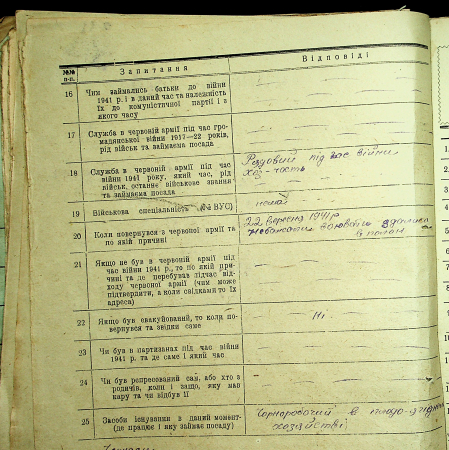 №№ п-п.
Запитання
Відповіді
16
Чим займались батьки до війни
1941 р. і в даний час та належність
їх до комуністичної партії і з
якого часу
17
Служба в червоній армії під час гро-
мадянської війни 1917—22 років,
рід військ та займаєма посада
18
Служба в червоній армії під час
війни 1941 року, який час, рід
військ, останнє військове звання
та займаєма посада
Рядовий під час війни
хоз-часть
19
Військова спеціальність (№ ВУС)
немає
20
Коли повернувся з червоної армії та
по якій причині
22 вересня 1941 р
Небажати воювати здалися
в полон
21
Якщо не був в червоній армії під
час війни 1941 р., то по якій при-
чині та де перебував підчас від-
ходу червоної армії (чим може
підтвердити, а коли свідками то їх
адреса)
22
Якщо був евакуйований, то коли по-
вернувся та звідки саме
Ні
23
Чи був в партизанах під час війни
1941 р. та де саме і який час
24
Чи був репресований сам, або хто з
родичів, коли і защо, яку мав
кару та чи відбув її
25
Засоби існування в даний момент-
(де працює і яку займає посаду)
Чорноробочий в плодо-ягідн
хозяйстві